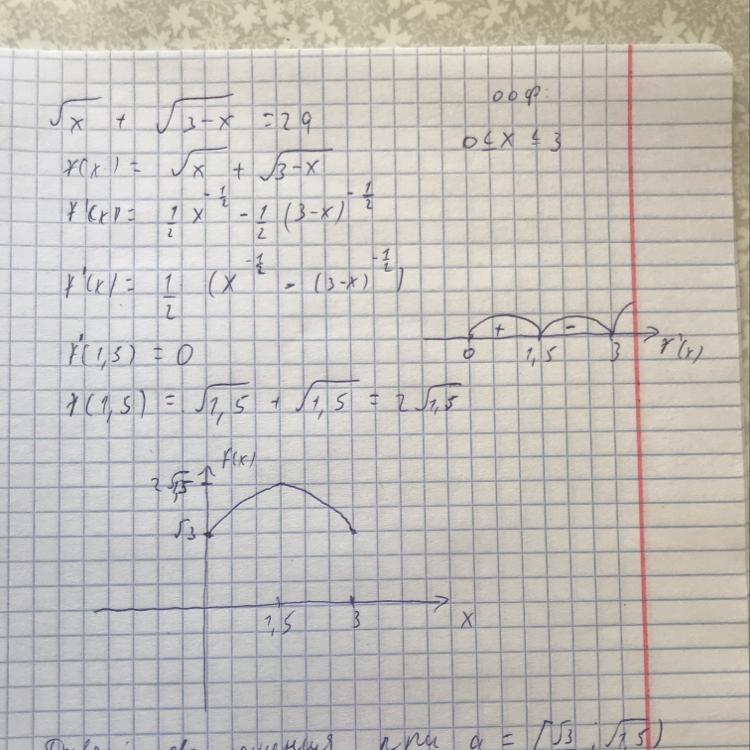 √x + √(3-x) = 2a
ооф:
0 ≤ x ≤ 3
f(x) = √x + √(3-x)
f'(x) = 1/2 x^(-1/2) - 1/2 (3-x)^(-1/2)
f'(x) = 1/2 (x^(-1/2) - (3-x)^(-1/2))
+ -
0 1,5 3 f'(x)
f'(1,5) = 0
f(1,5) = √1,5 + √1,5 = 2√1,5
f(x)
2√1,5
√3
1,5 3 x
при a = [√3 ; √1,5)